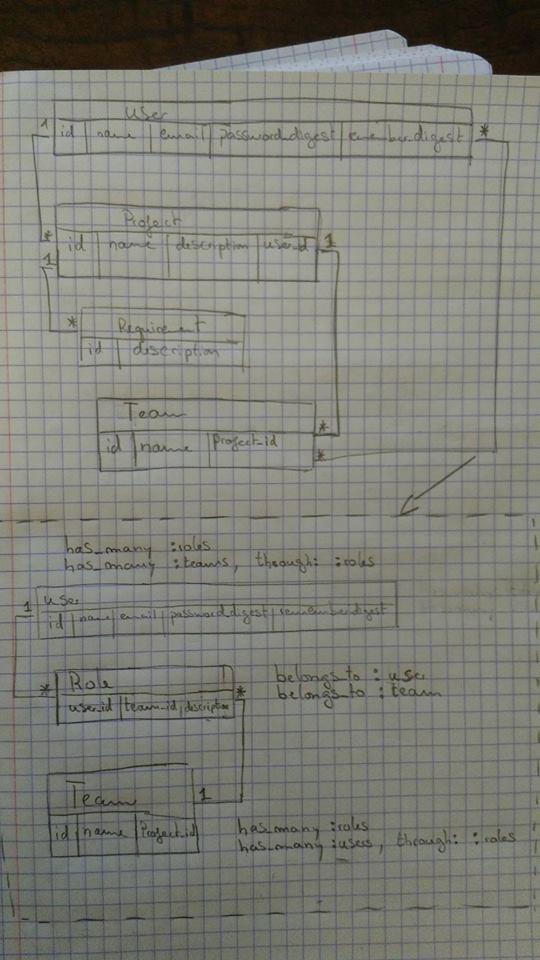 User
1 id name email password_digest remember_digest *
Project
* id name description user_id 1
1
* Requirement
id description
Team *
id name Project_id *
has_many :roles
has_many :teams, through: :roles
User
1 id name email password_digest remember_digest
* Role * belongs_to :user
user_id team_id description belongs_to :team
Team 1
id name Project_id has_many :roles
has_many :users, through: :roles